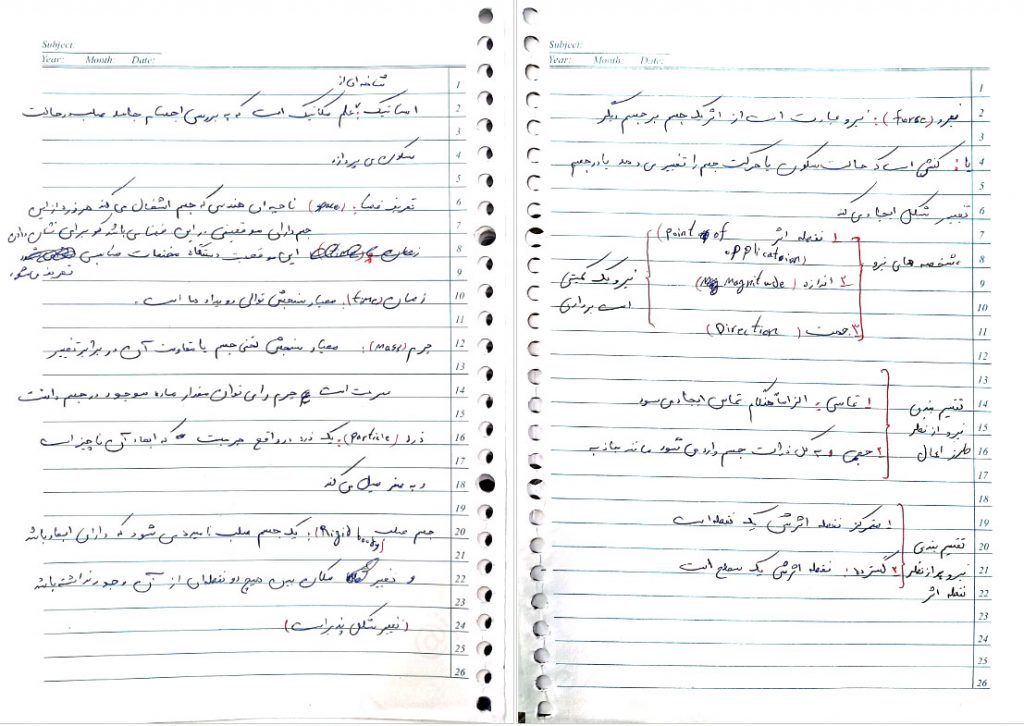 Subject:
Year: Month: Date:
شاخه ای از
استاتیک: علم مکانیک است که به بررسی اجسام جامد صلب در حالت
سکون می پردازد
تعریف فضا: (space) ناحیه ای هندسی که جسم اشغال می کند هر ذره از این
جسم دارای موقعیتی در این فضا می باشد که برای نشان دادن
این موقعیت دستگاه مختصات مناسبی
تعریف می شود
زمان (time): معیار سنجش توالی رویداد ها است.
جرم (mass): معیار سنجش لختی جسم یا مقاومت آن در برابر تغییر
سرعت است جرم را می توان مقدار ماده موجود در جسم دانست
ذره (particle): یک ذره در واقع جرمیست که ابعاد آن ناچیز است
و به صفر میل می کند
جسم صلب (Rigid boody): یک جسم صلب نامیده می شود که دارای ابعاد باشد
و تغییر مکان بین هیچ دو نقطه ای از آن وجود نداشته باشد
(تغییر شکل پذیر است)
1
2
3
4
5
6
7
8
9
10
11
12
13
14
15
16
17
18
19
20
21
22
23
24
25
26
Subject:
Year: Month: Date:
نیرو (forse): نیرو عبارت است از اثر یک جسم بر جسم دیگر
یا: کنشی است که حالت سکون یا حرکت جسم را تغییر می دهد یا در جسم
تغییر شکل ایجاد می کند
مشخصه های نیرو
۱ نقطه اثر (point of
applicataion)
۲ اندازه (Magnitude)
۳ جهت (Direction)
نیرو یک کمیتی
است برداری
تقسیم بندی
نیرو از نظر
طرز اعمال
۱ تماسی: الزاماً هنگام تماس ایجاد می شود
۲ حجمی و به کل ذرات جسم وارد می شود مانند جاذبه
تقسیم بندی
نیرو از نظر
نقطه اثر
۱ متمرکز نقطه اثرش یک نقطه است
۲ گسترده: نقطه اثرش یک سطح است
1
2
3
4
5
6
7
8
9
10
11
12
13
14
15
16
17
18
19
20
21
22
23
24
25
26